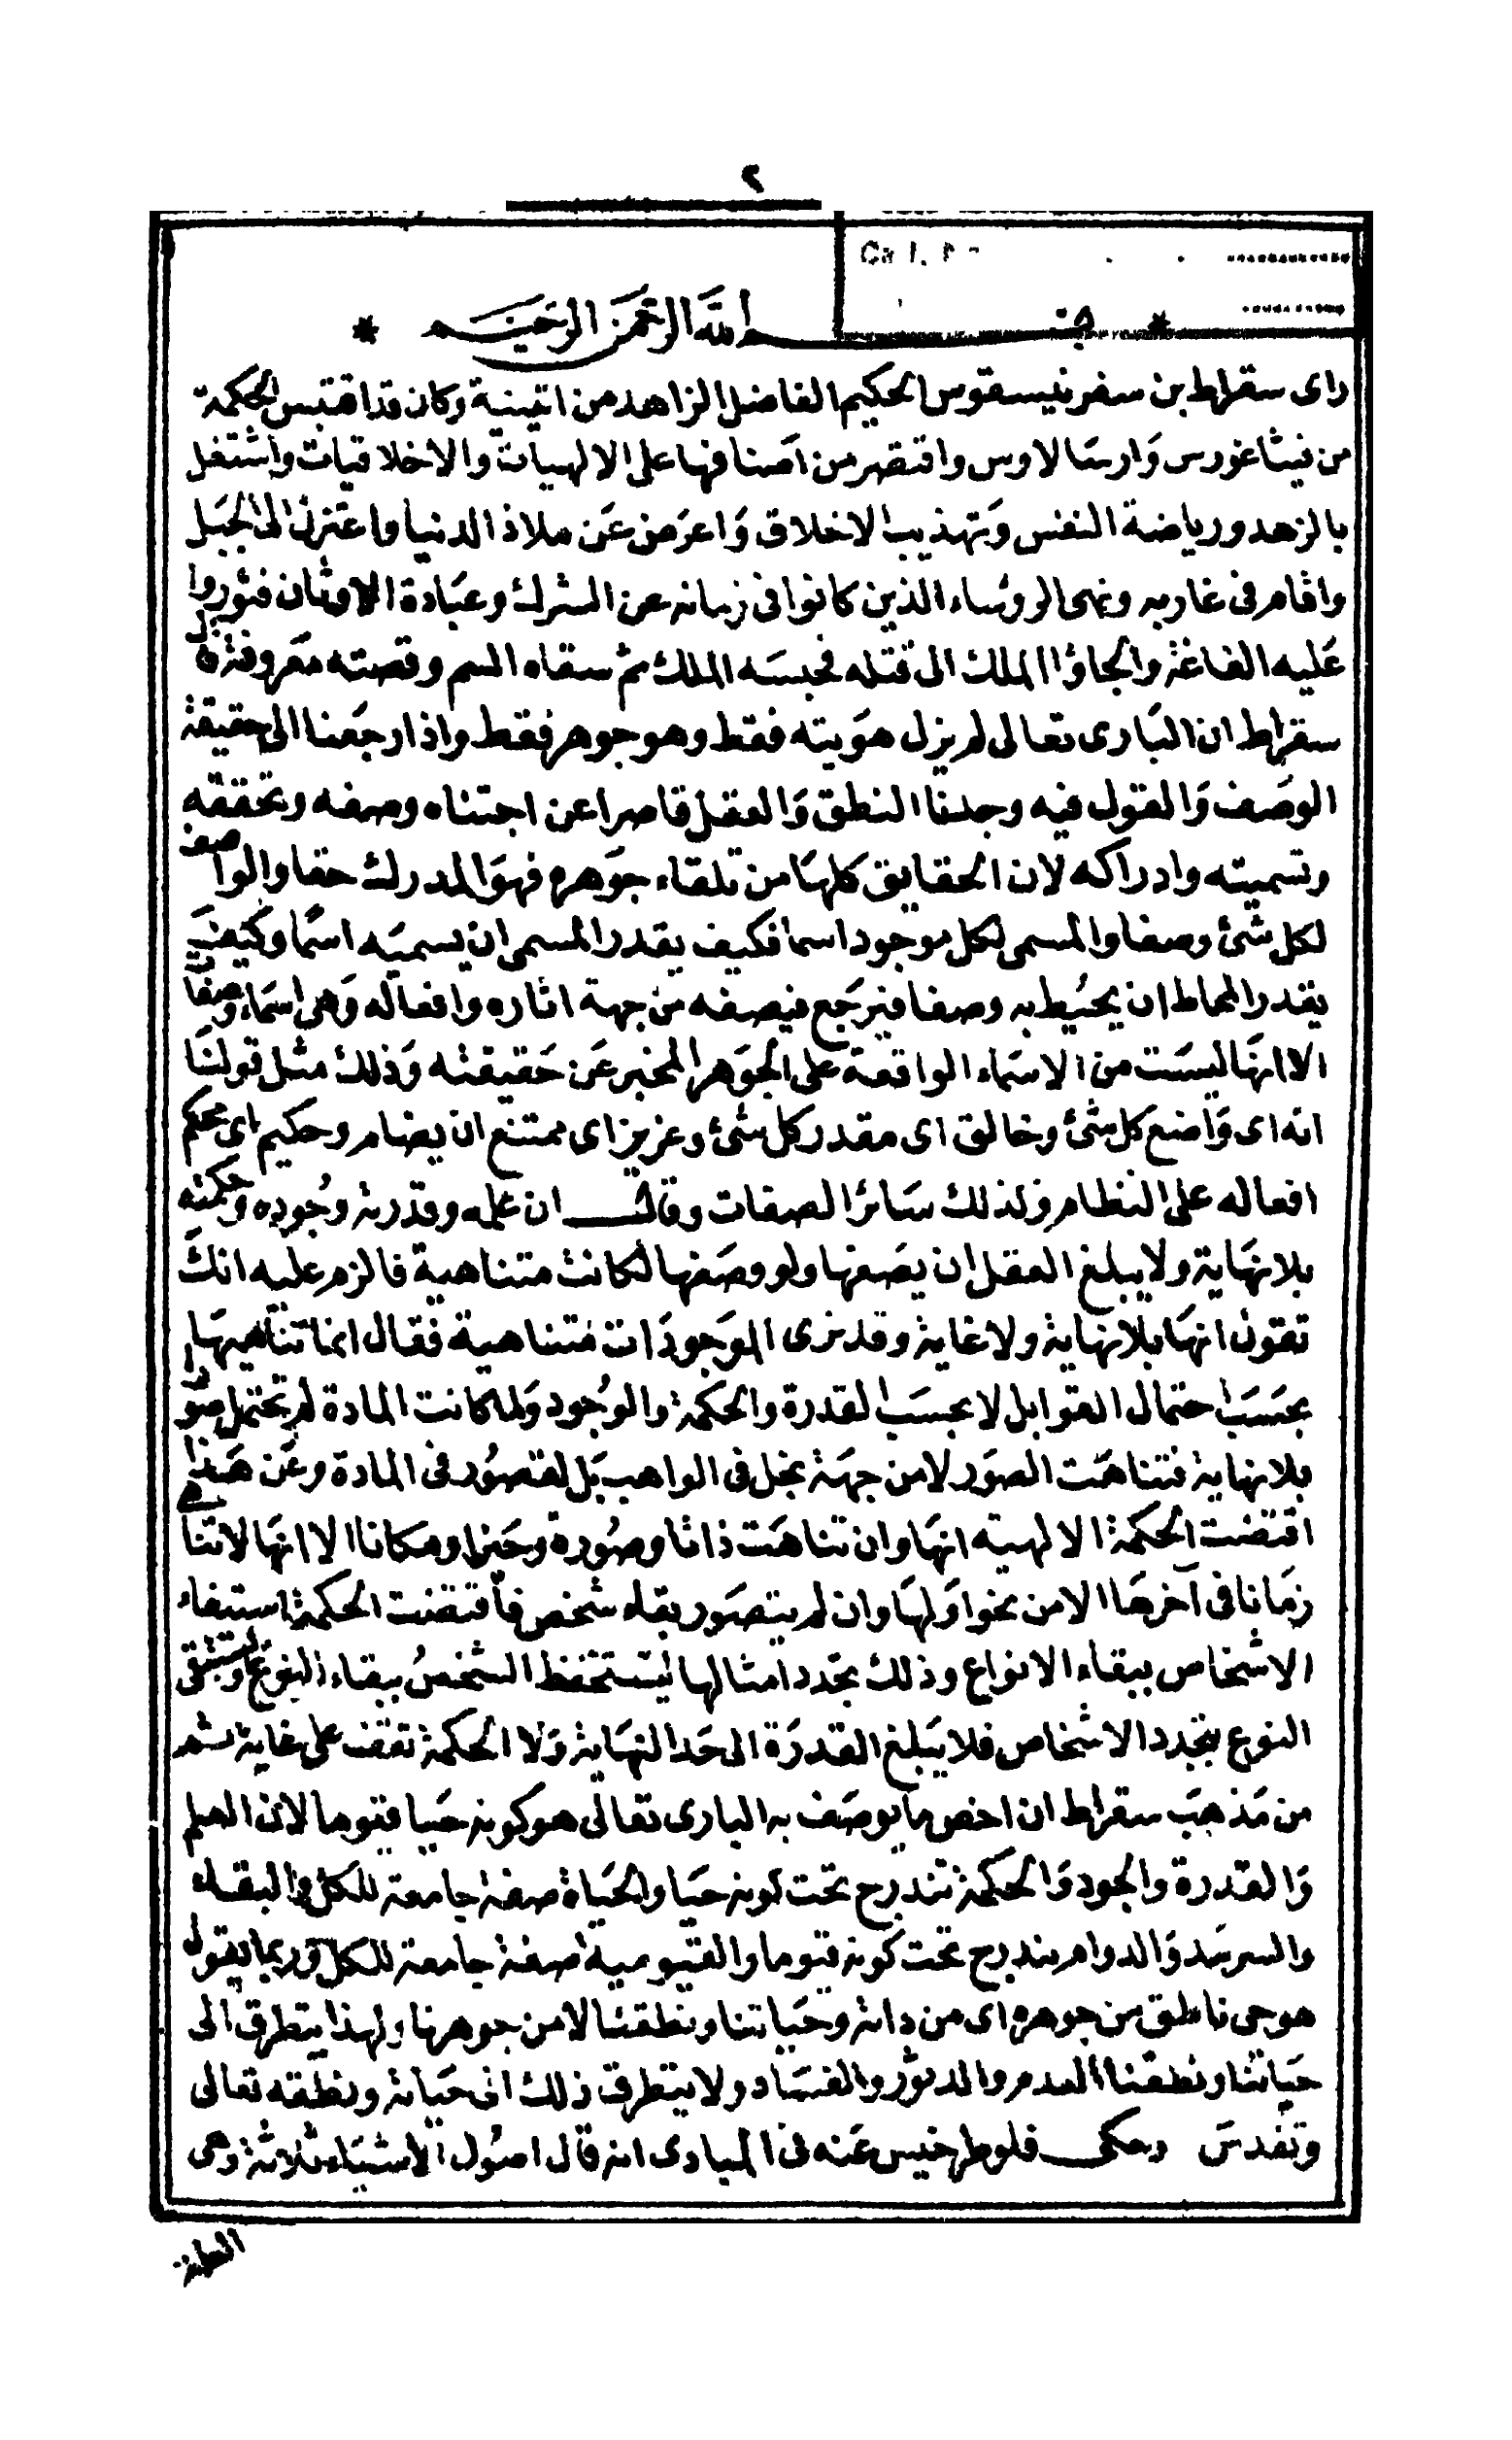 ٢
* بسم الله الرحمن الرحيم *
راى سقراط بن سفرنيسقوس الحكيم الفاضل الزاهد من اثينية وكان قد اقتبس الحكمة
من فيثاغورس وَارسَالاوس واقتصر من اصنافها على الالهيات والاخلاقيات واشتغل
بالزهد ورياضة النفس وَتهذيب الاخلاق وَاعرَض عَن ملاذ الدنيا واعتزل الى الجبَل
واقام فى غاربه ونهى الروساء الذين كانوا فى زمانه عن الشرك وعبَادة الاوثان فثوروا
عَليه الغاغة والجاؤا الملك الى قتله فحبسَه الملك ثم سقاه السم وقصته مَعروفة راى
سقراط ان البَارى تعالى لم يزل هوَيته فقط وهو جوهر فقط واذا رجَعنا الى حقيقة
الوصَف وَالقول فيه وجدنا النطق وَالعقل قاصرا عن اجتناه وصفه وتحققه
وتسميته وادراكه لان الحقايق كلهَا من تلقاء جوَهره فهوَ المدرك حقا والواصف
لكل شئ وصفا والمسمى لكل موجود اسما فكيف يقدر المسمى ان يسميَه اسمًا وكيفَ
يقدر المحاط ان يحيُط به وصفا فيرجَع فيصفه من جهة اثاره وافعاله وَهى اسمَاء وصفا
الا انهَا ليسَت من الاسمَاء الواقعة على الجوَهر المخبر عَن حَقيقته وَذلك مثل قولنَا
اله اى وَاضع كل شئ وخالق اى مقدر كل شئ وعزيز اى ممتنع ان يضام وحكيم اى محكم
افعاله على النظام وكذلك سَائر الصفات وقال ان علمه وقدرته وجُوده وحكمته
بلا نهَاية ولا يبلغ العقل ان يصَفها ولو وصَفها لكانت متناهية فالزم عليه انكَ
تقول انهَا بلا نهاية ولا غاية وقد نرى الموَجودَات متناهية فقال انما تناهيهَا
بحسَب احتمال القوابل لا بحسَب القدرة والحكمة والوُجود وَلما كانت المادة لم تحتمل صَورا
بلا نهاية فتناهَت الصوَر لا من جهَة بخل فى الواهب بَل لقصوُر فى المادة وعَن هَذا
اقتضت الحكمة الالهية انهَا وان تناهَت ذاتا وصُورة وحَيزا ومكانا الا انهَا لا تتناهى
زمَانا فى آخرهَا الا من نحو اوَلهَا وان لم يتصوَر بقاء شخص فاقتضت الحكمة استبقاء
الاشخاص ببقاء الانواع وذلك بتجدد امثالها ليستحفظ الشخصُ ببقاء النوع ويستبقى
النوع بتجدد الاشخاص فلا يبَلغ القدرَة الى حَد النهَاية وَلا الحكمة تقف على غاية ثم
من مَذهبَ سقراط ان اخص ما يوصَف به البارى تعالى هو كونه حَيا قيوما لان العلم
وَالقدرة والجود وَالحكمة تندرج تحت كونه حيَا والحيَاة صفة جامعة للكل والبقاء
والسرمَد وَالدوام يندرج تحت كونه قيوما والقيومية صفة جامعة للكل وربما يقول
هو حى ناطق من جوهره اى من ذاته وحَياتنا ونطقنا لا من جوهرنا ولهذا يتطرق الى
حيَاتنا ونطقنا العدم والدثور والفسَاد ولا يتطرق ذلك الى حيَاته ونطقه تعالى
وتقدسَ وحكى فلوطرخيس عَنه فى المبادى انه قال اصوُل الاشيَاء ثلاثة وهى
العلة